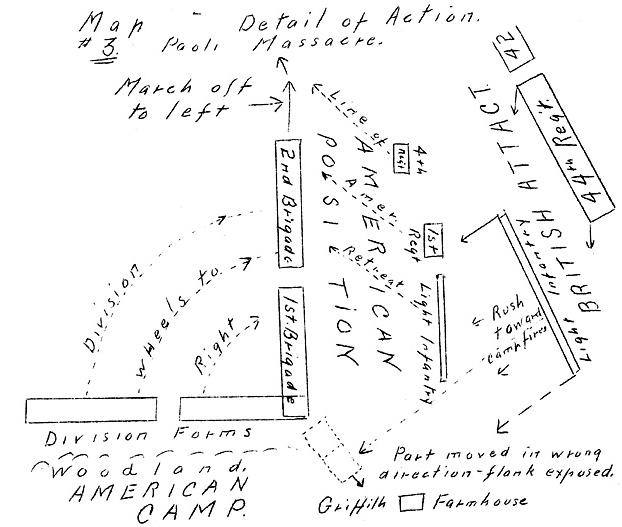 Map - Detail of Action.
#3 Paoli Massacre.
March off
to left
42
44th Regt.
BRITISH ATTACT.
Light Infantry
Line of
Amer.
Retreat
4th
Regt
1st
Regt
AMERICAN
POSSIETION
Light Infantry
2nd Brigade
1st. Brigade
Division
Wheels to
Right
Rush
toward
campfires
Division Forms
Woodland.
AMERICAN
CAMP.
Part moved in wrong
direction-flank exposed.
Griffith Farmhouse